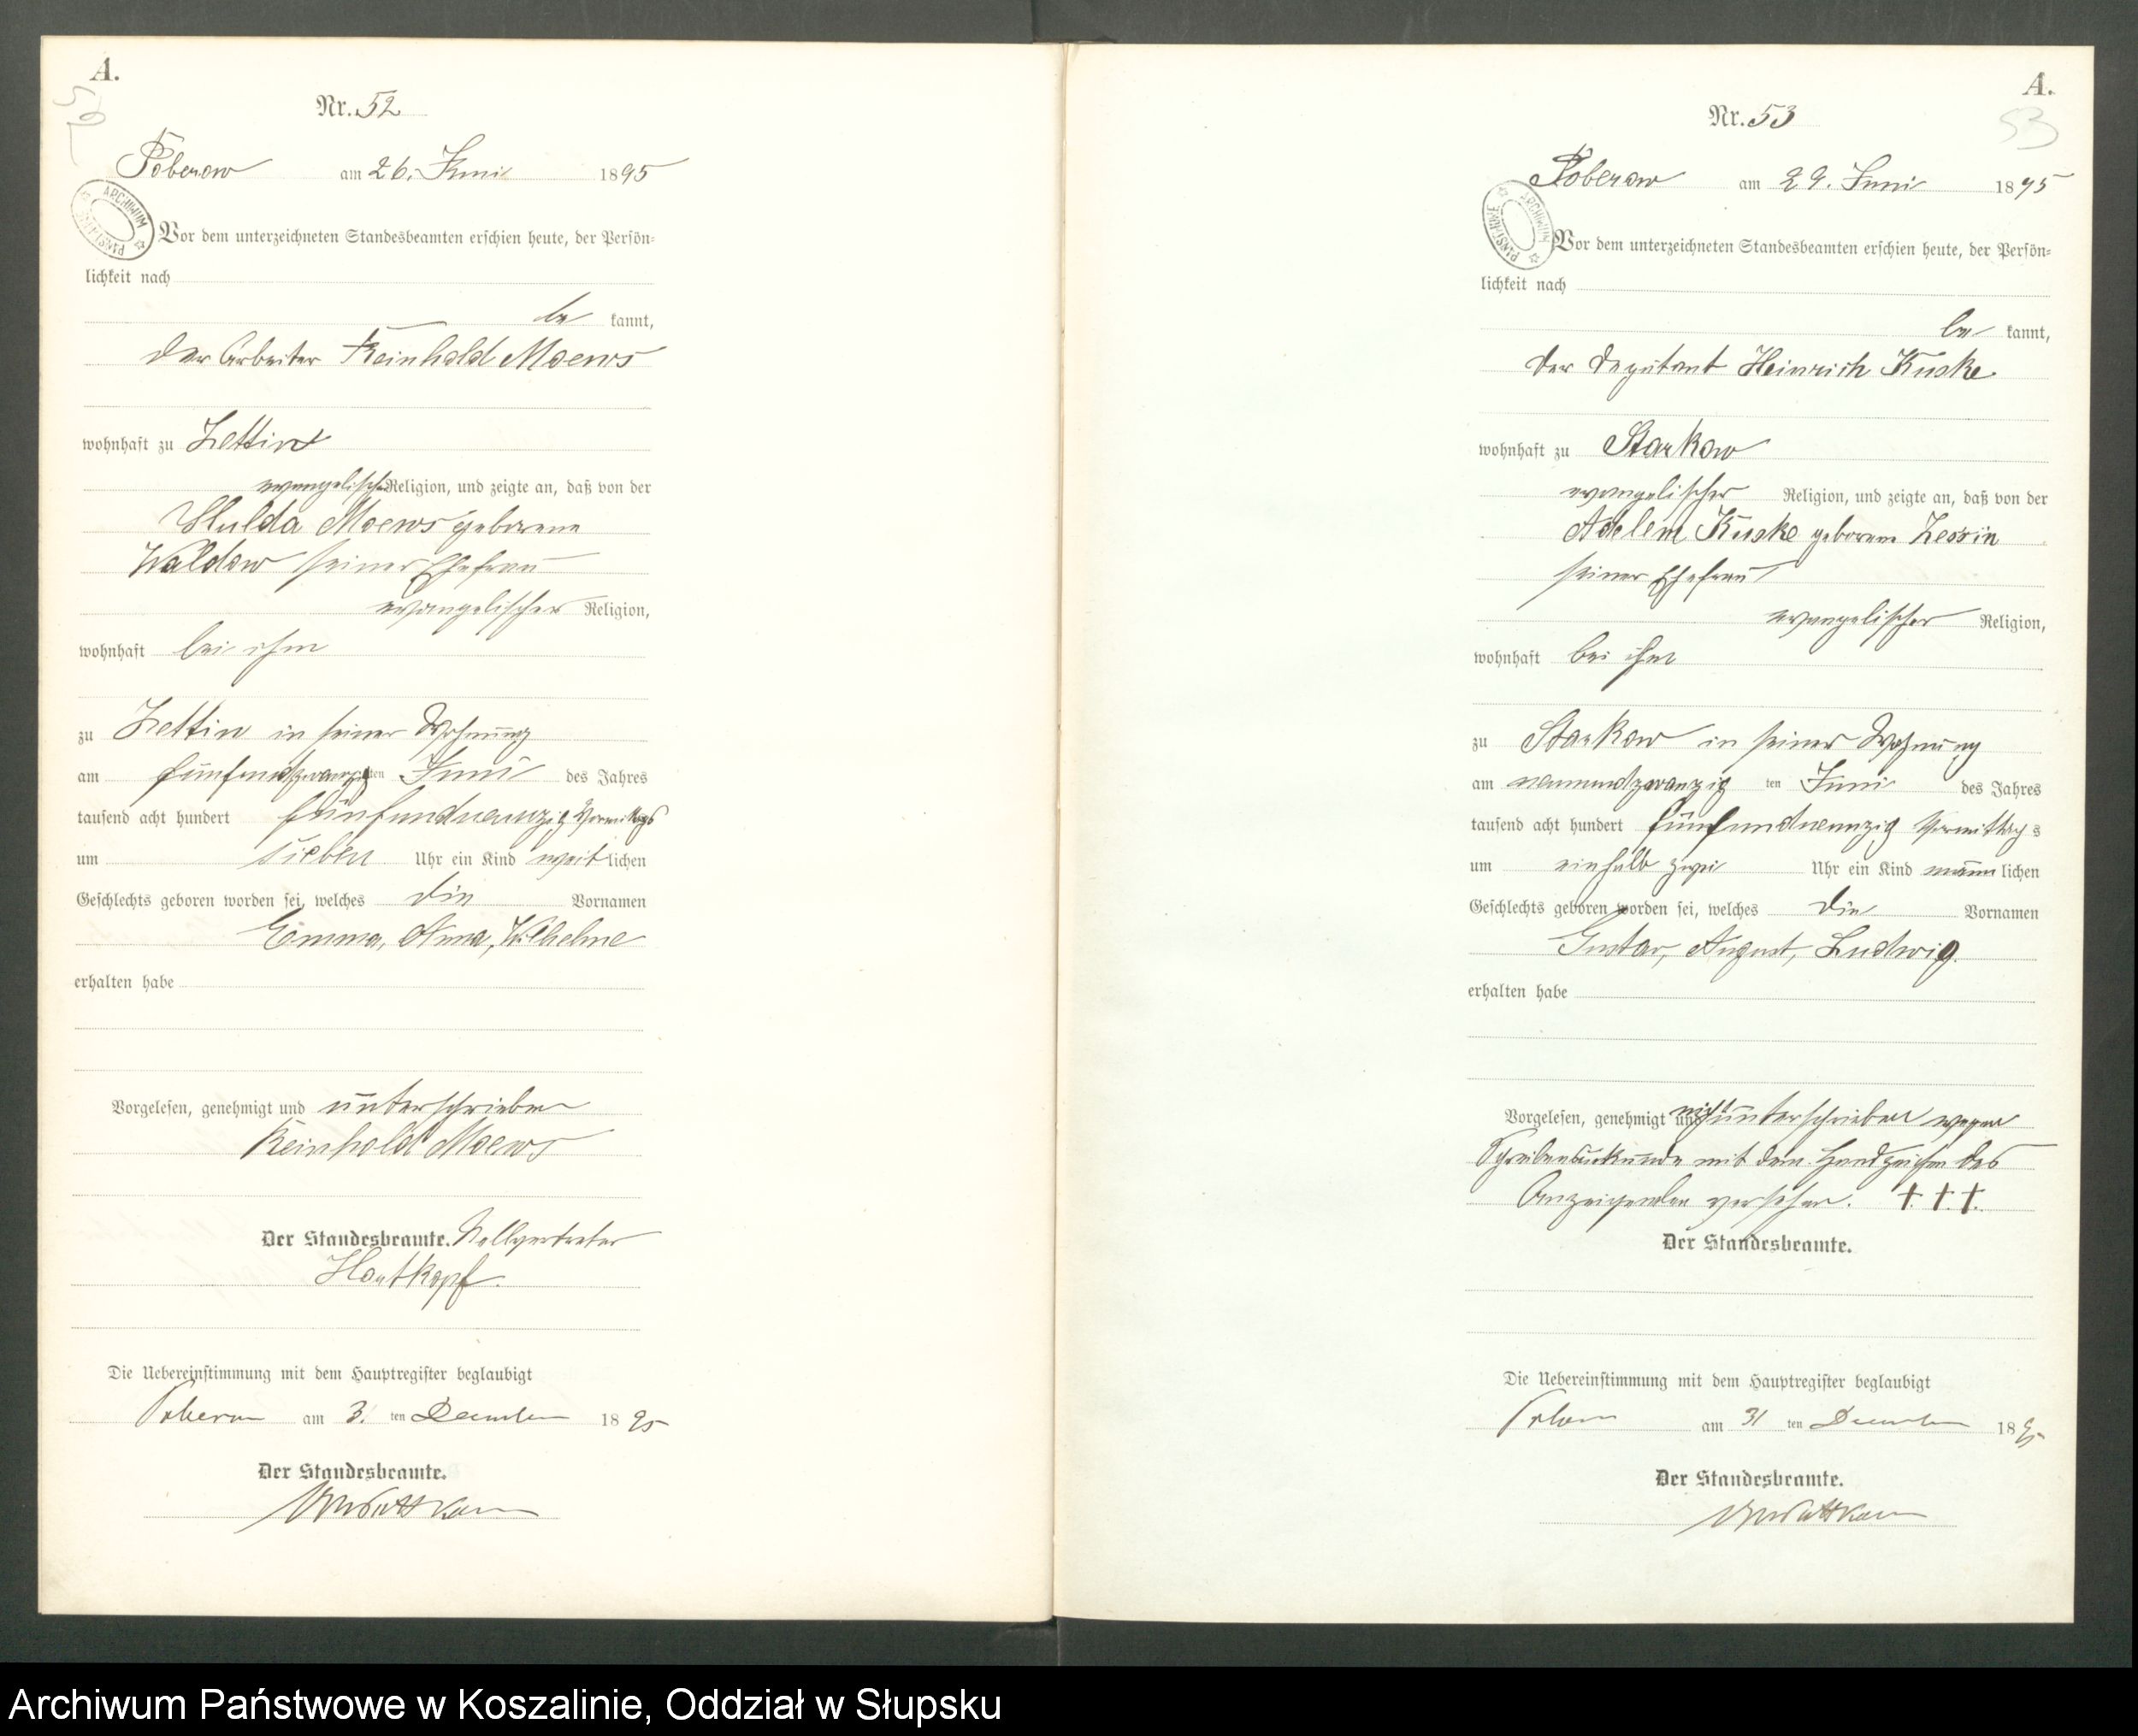 A.
52
Nr. 52
Poberow am 26. Juni 1895
ARCHIWUM PAŃSTWOWE
Vor dem unterzeichneten Standesbeamten erschien heute, der Persön-
lichkeit nach
be kannt,
der Arbeiter Reinhold Moews
wohnhaft zu Zettin
evangelischer Religion, und zeigte an, daß von der
Hulda Moews geborene
Waldow seiner Ehefrau
evangelischer Religion,
wohnhaft bei ihm
zu Zettin in seiner Wohnung
am fünfundzwanzigten Juni des Jahres
tausend acht hundert fünfundneunzig Vormittags
um sieben Uhr ein Kind weiblichen
Geschlechts geboren worden sei, welches die Vornamen
Emma, Anna, Wilhelmine
erhalten habe
Vorgelesen, genehmigt und unterschrieben
Reinhold Moews
Der Standesbeamte. Stellvertreter
Die Uebereinstimmung mit dem Hauptregister beglaubigt
Poberow am 31. ten December 1895
Der Standesbeamte.
A.
53
Nr. 53
Poberow am 29. Juni 1895
ARCHIWUM PAŃSTWOWE
Vor dem unterzeichneten Standesbeamten erschien heute, der Persön-
lichkeit nach
be kannt,
der Deputant Heinrich Kuske
wohnhaft zu Starkow
evangelischer Religion, und zeigte an, daß von der
Adeline Kuske geborene Zessin
seiner Ehefrau
evangelischer Religion,
wohnhaft bei ihm
zu Starkow in seiner Wohnung
am neunundzwanzig ten Juni des Jahres
tausend acht hundert fünfundneunzig Vormittags
um einhalb zwei Uhr ein Kind männlichen
Geschlechts geboren worden sei, welches die Vornamen
Gustav, August, Ludwig.
erhalten habe
Vorgelesen, genehmigt und nicht unterschrieben wegen
mit dem Handzeichen des
Anzeigenden versehen. †. †. †.
Der Standesbeamte.
Die Uebereinstimmung mit dem Hauptregister beglaubigt
Poberow am 31 ten December 1895
Der Standesbeamte.
Archiwum Państwowe w Koszalinie, Oddział w Słupsku